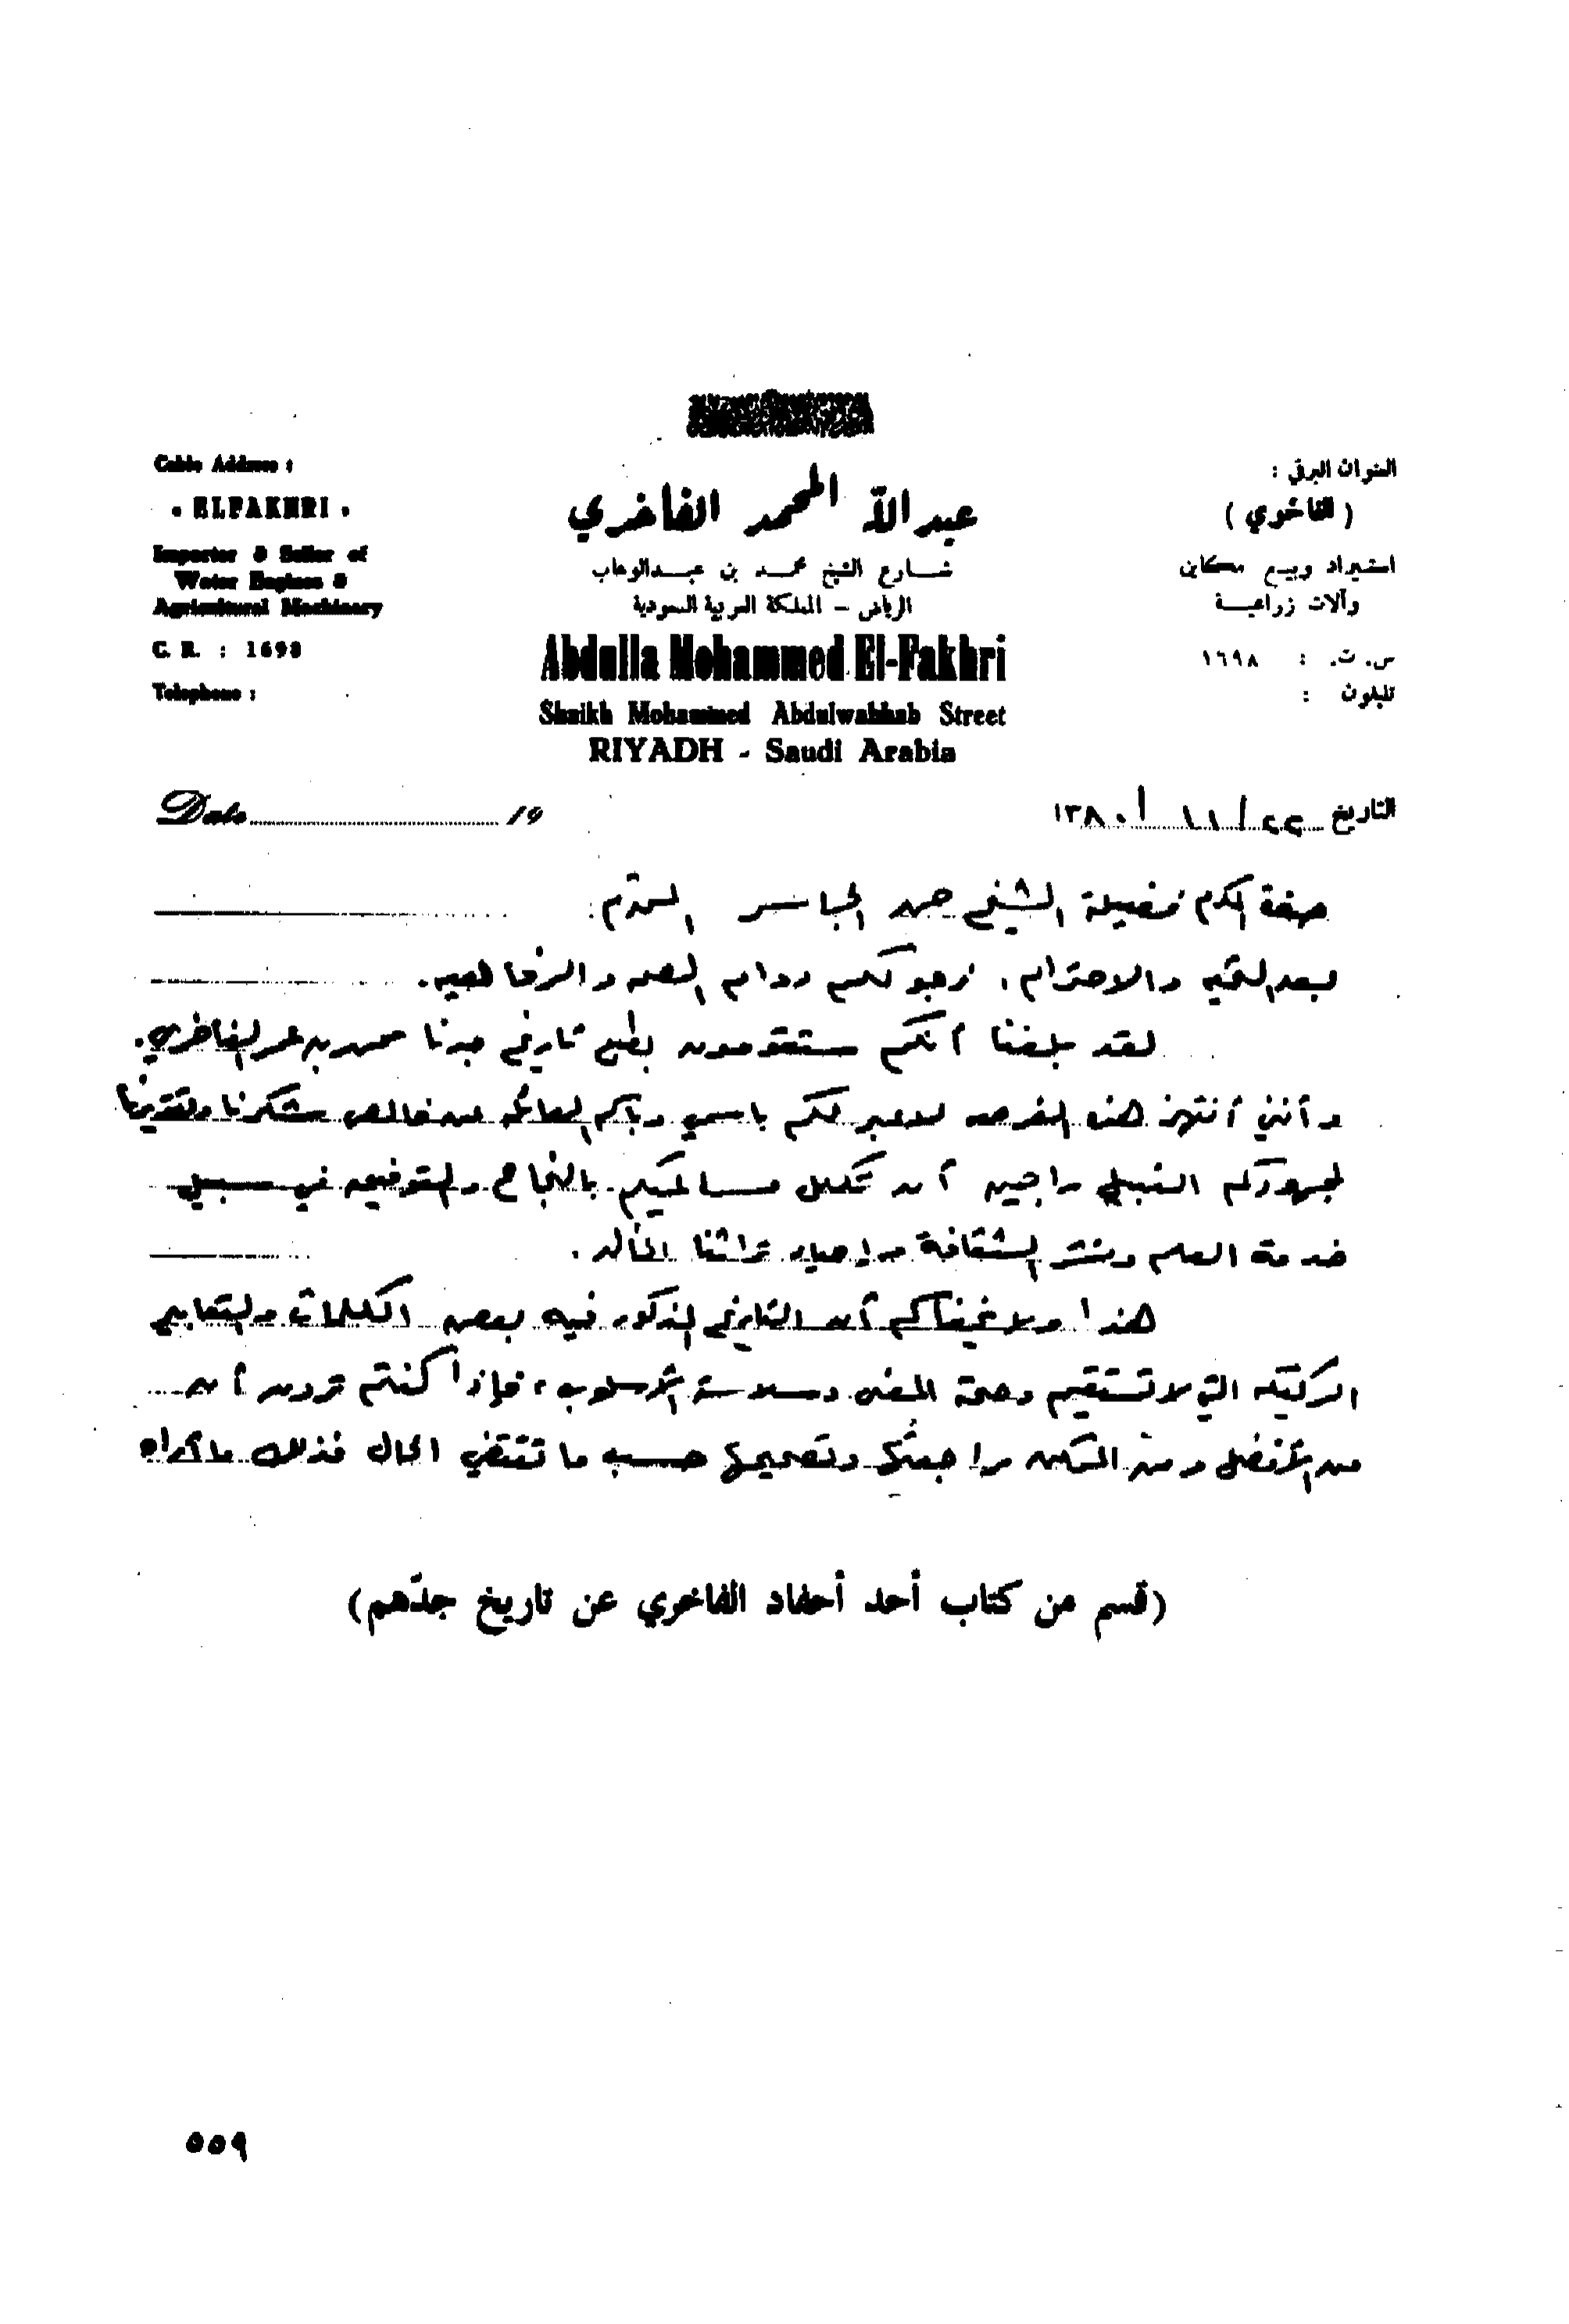 Cable Address :
« ELFAKHRI »
Importer & Seller of
Water Engines &
Agricultural Machinery
C. R. : 1698
Telephone :
عبد الله المحمد الفاخري
شارع الشيخ محمد بن عبدالوهاب
الرياض - المملكة العربية السعودية
Abdulla Mohammed El-Fakhri
Shaikh Mohammed Abdulwahhab Street
RIYADH - Saudi Arabia
العنوان البرقي :
( الفاخري )
استيراد وبيع مكاين
وآلات زراعية
س. ت. : ١٦٩٨
تلفون :
Date 19
التاريخ ٢٢/ ١١ / ١٣٨٠
حضرة المكرم فضيلة الشيخ حمد الجاسر المحترم.
بعد التحيه والاحترام، نرجو لكم دوام الصحه والرفاهيه.
لقد بلغنا أنكم ستقومون بطبع تاريخ جدنا محمد بن عمر الفاخري.
وأنني أنتهز هذه الفرصه لأعبر لكم باسمي وباسم العائله عن خالص شكرنا وتقديرنا
لجهودكم النبيله راجين أن تكلل مساعيكم بالنجاح والتوفيق في سبيل
خدمة العلم ونشر الثقافة وإحياء تراثنا الخالد.
هذا ولا يخفاكم أن التاريخ المذكور فيه بعض الكلمات والتعابير
الركيكه التي لا تستقيم وصحة المعنى وسلاسة الأسلوب، فإذا كنتم ترون أن
من الأفضل ومن الممكن مراجعتها وتصحيحها حسب ما تقتضي الحال فذلك ما أراه
(قسم من كتاب أحد أحفاد الفاخري عن تاريخ جدّهم)
٥٥٩